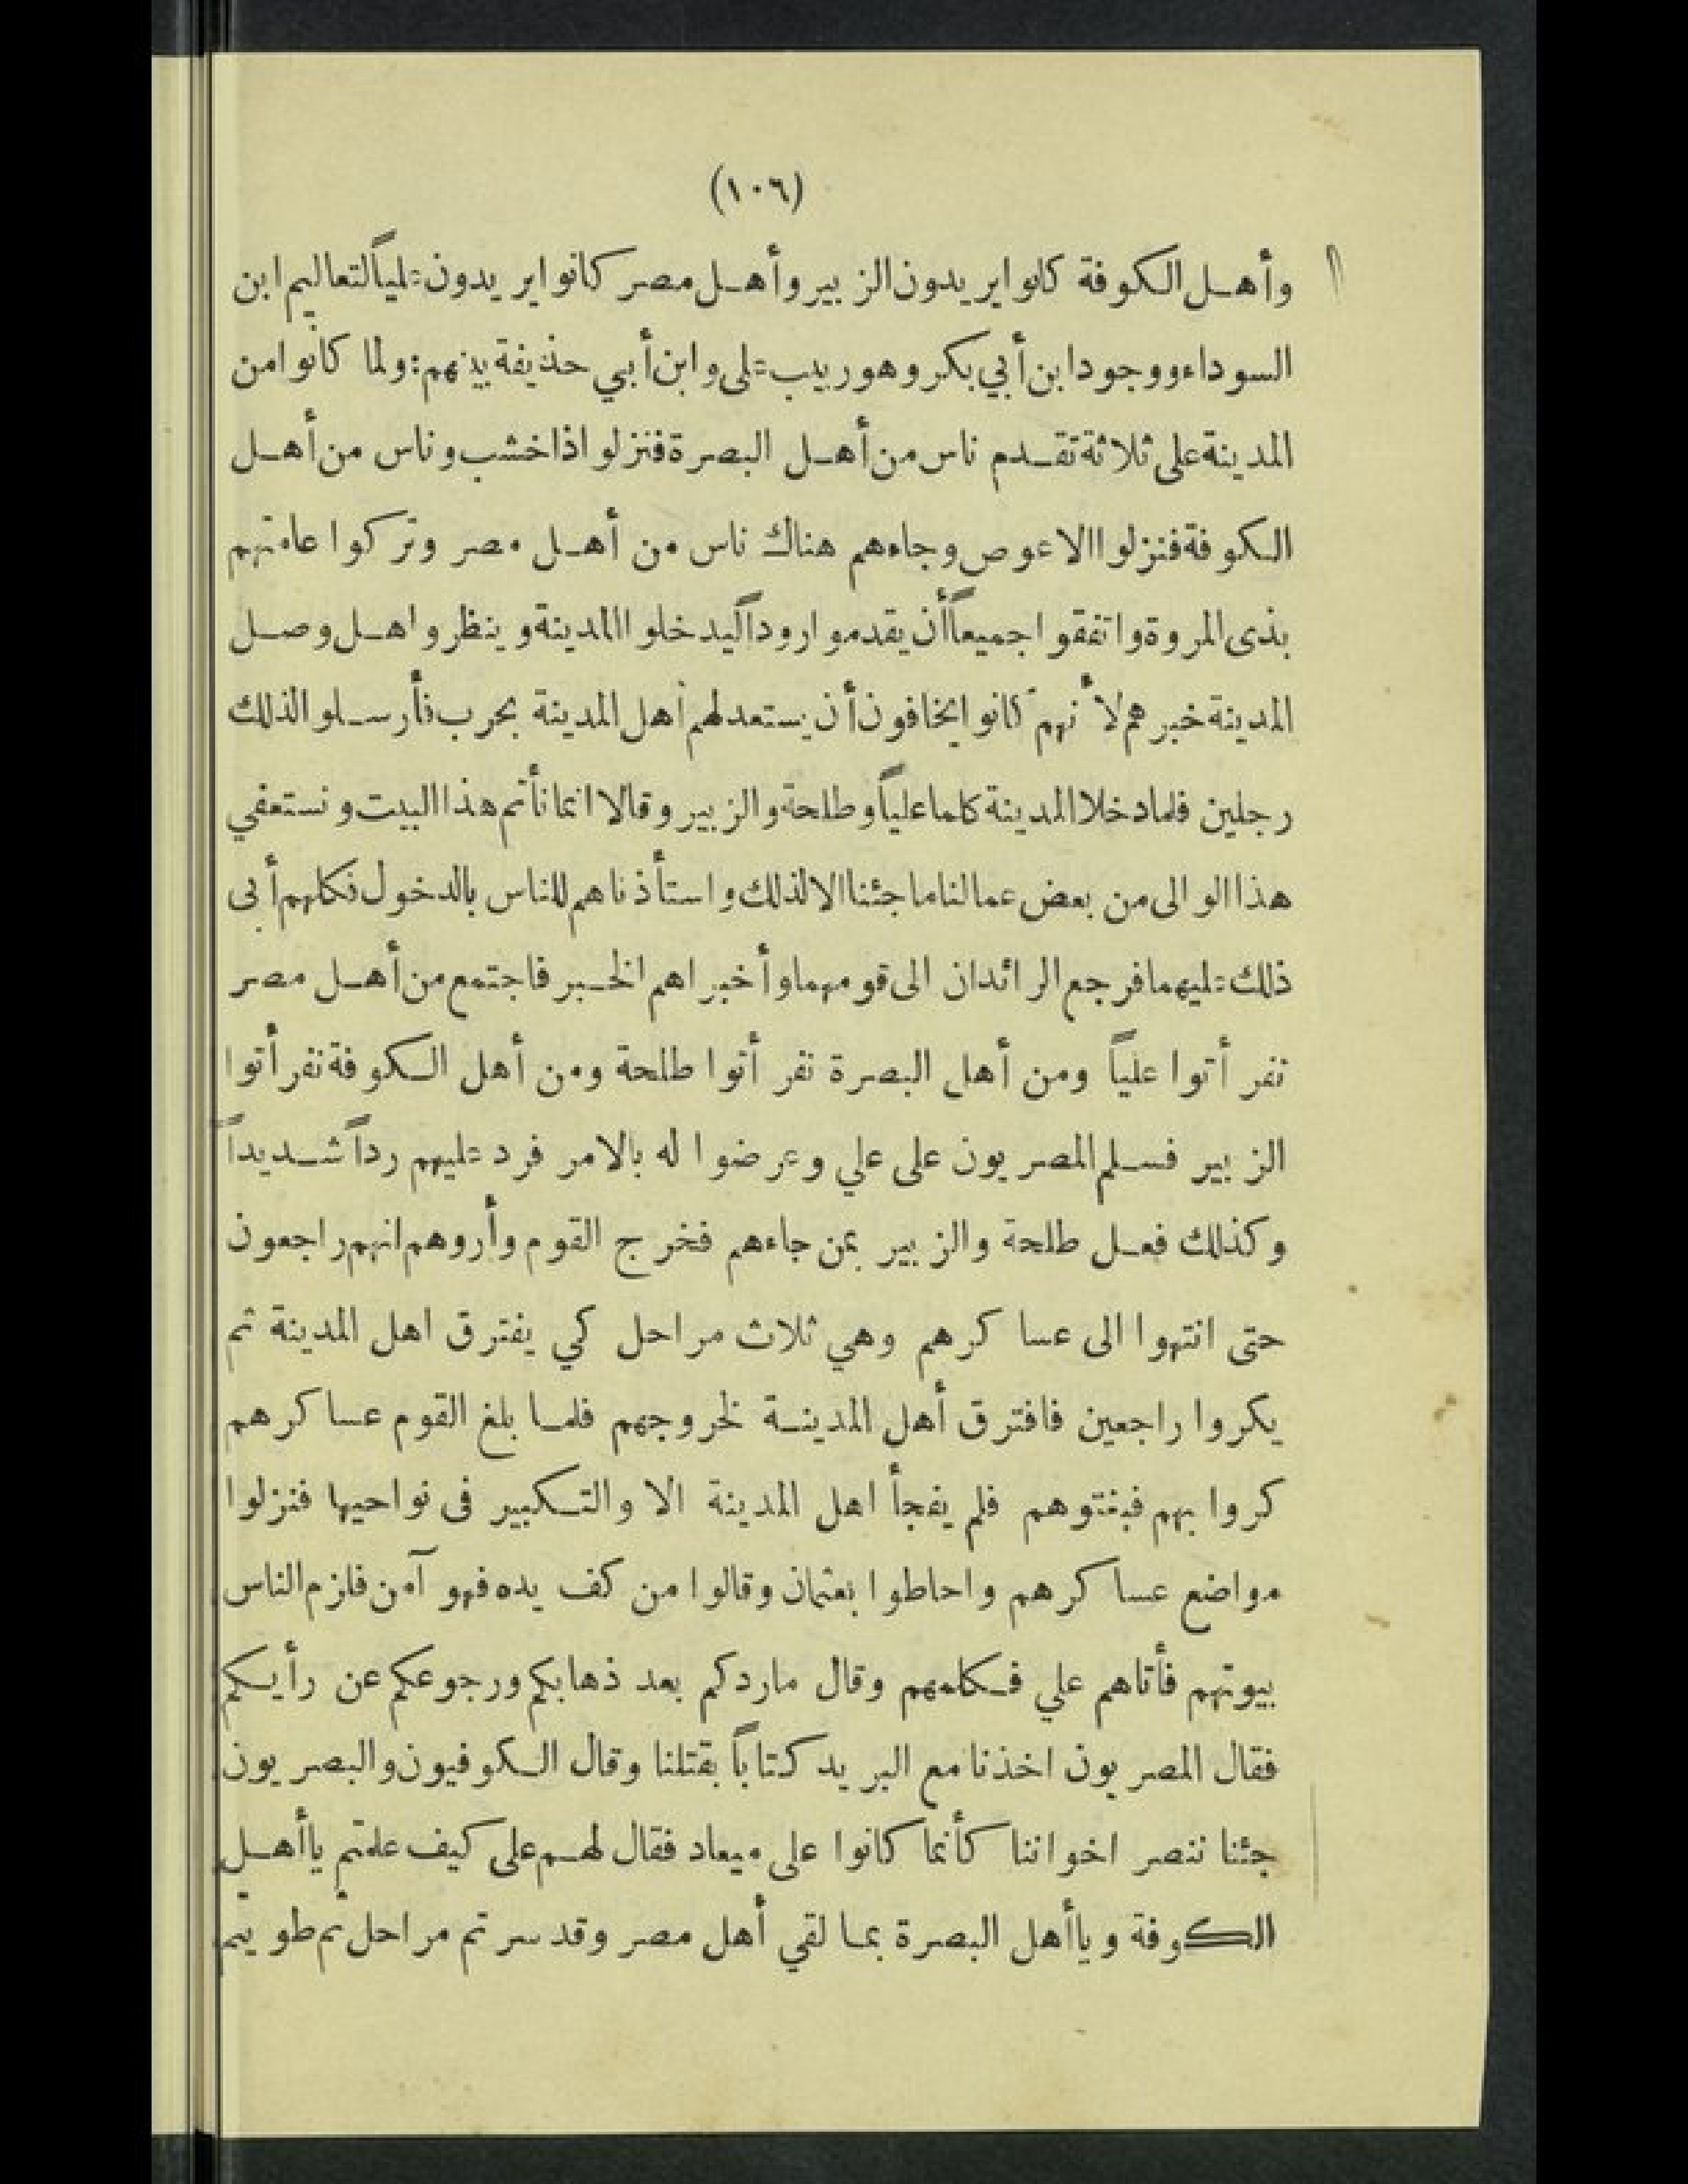 (١٠٦)
وأهل الكوفة كانوا يريدون الزبير وأهل مصر كانوا يريدون علياً لتعاليم ابن
السوداء ووجود ابن أبي بكر وهو ربيب علي وابن أبي حذيفة بينهم: ولما كانوا من
المدينة على ثلاثة تقدم ناس من أهل البصرة فنزلوا ذا خشب وناس من أهل
الكوفة فنزلوا الاعوص وجاءهم هناك ناس من أهل مصر وتركوا عامتهم
بذى المروة واتفقوا جميعاً أن يقدموا روداً ليدخلوا المدينة وينظروا هل وصل
المدينة خبرهم لأنهم كانوا يخافون أن يستعد لهم أهل المدينة بحرب فأرسلوا لذلك
رجلين فلما دخلا المدينة كلما علياً وطلحة والزبير وقالا انما نأتم هذا البيت ونستعفي
هذا الوالى من بعض عمالنا ما جئنا الا لذلك واستأذناهم للناس بالدخول فكلهم أبى
ذلك عليهما فرجع الرائدان الى قومهما وأخبراهم الخبر فاجتمع من أهل مصر
نفر أتوا علياً ومن أهل البصرة نفر أتوا طلحة ومن أهل الكوفة نفر أتوا
الزبير فسلم المصريون على علي وعرضوا له بالامر فرد عليهم رداً شديداً
وكذلك فعل طلحة والزبير بمن جاءهم فخرج القوم وأروهم انهم راجعون
حتى انتهوا الى عساكرهم وهي ثلاث مراحل كي يفترق اهل المدينة ثم
يكروا راجعين فافترق أهل المدينة لخروجهم فلما بلغ القوم عساكرهم
كروا بهم فبغتوهم فلم يفجأ اهل المدينة الا والتكبير فى نواحيها فنزلوا
مواضع عساكرهم واحاطوا بعثمان وقالوا من كف يده فهو آمن فلزم الناس
بيوتهم فأتاهم علي فكلمهم وقال ماردكم بعد ذهابكم ورجوعكم عن رأيكم
فقال المصريون اخذنا مع البريد كتاباً بقتلنا وقال الكوفيون والبصريون
جئنا ننصر اخواننا كأنما كانوا على ميعاد فقال لهم على كيف علمتم يا أهل
الكوفة ويا أهل البصرة بما لقي أهل مصر وقد سرتم مراحل ثم طويتم